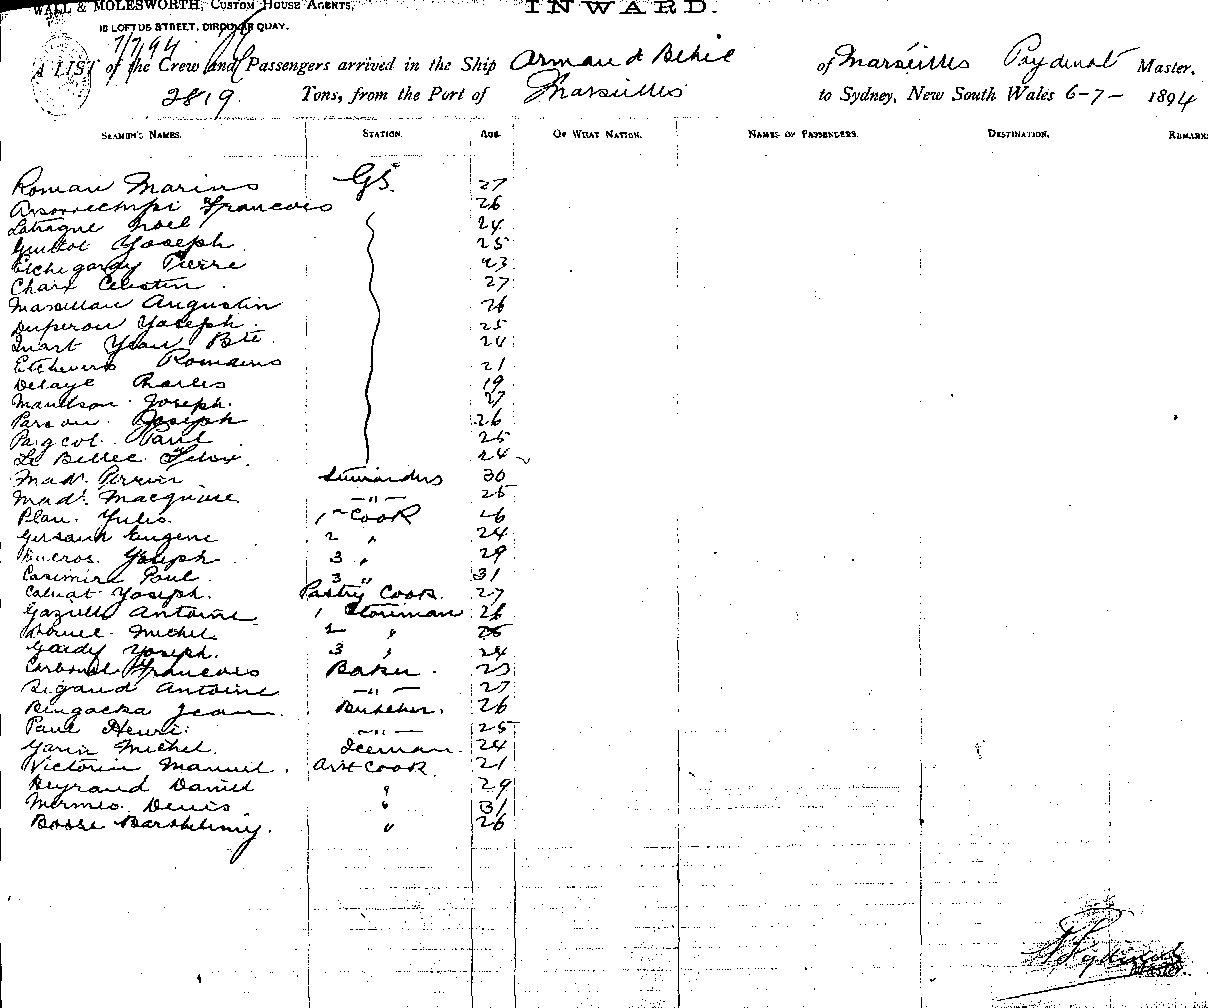 WALL & MOLESWORTH, CUSTOM HOUSE AGENTS,
INWARD.
18 LOFTUS STREET, CIRCULAR QUAY.
7/7/94
A LIST of the Crew and Passengers arrived in the Ship Armand Behic of Marseilles Poydenot Master,
2819 Tons, from the Port of Marseilles to Sydney, New South Wales 6-7- 1894
SEAMEN'S NAMES. STATION. AGE. OF WHAT NATION. NAMES OF PASSENGERS. DESTINATION. REMARKS
Roman Marius GS. 27
Francois 26
Latrague Noel 24
Guillot Yoseph 25
Etchegardy Pierre 23
Chaix Celestin 27
Massillan Augustin 26
Duperou Yoseph 25
Yean Bte 24
Etchevers Romains 21
Delaye Charles 19
Maudson Joseph 27
Parcou Joseph 26
Pageot Paul 25
Le Bellec Felix 24
Mad. Perrin Stewardess 30
Mad. Macquaire -"- 25
Plan Yules 1st Cook 26
Eugene 2 " 24
Bucros Yoseph 3 " 29
Casimir Paul 3 " 31
Calvat Yoseph. Pastry Cook. 27
Gazielle Antoine 1 Storeman 26
Michel 2 " 25
Gardy Yoseph. 3 " 24
Carbonel Francois Baker. 23
Sigaud Antoine -"- 27
Jean Butcher. 26
Paul Henri -"- 25
Garin Michel. Iceman 24
Victorin Manuel. Asst Cook. 21
Beyraud Daniel " 29
Mermes Denis " 31
Bosse Barthelemy. " 26
Poydenot
Master.